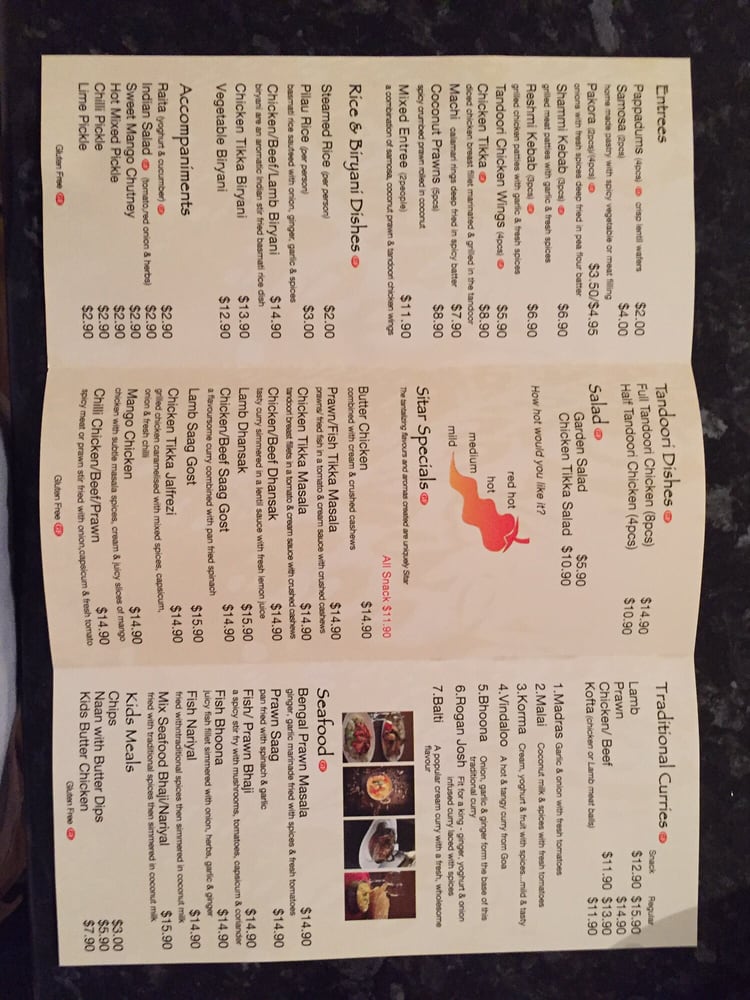 Entrees
Pappadums (4pcs) GF crisp lentil wafers $2.00
Samosa (2pcs) $4.00
home made pastry with spicy vegetable or meat filling
Pakora (2pcs)/(4pcs) GF $3.50/$4.95
onions with fresh spices deep fried in pea flour batter
Shammi Kebab (3pcs) GF $6.90
grilled meat patties with garlic & fresh spices
Reshmi Kebab (3pcs) GF $6.90
grilled chicken patties with garlic & fresh spices
Tandoori Chicken Wings (4pcs) GF $5.90
Chicken Tikka GF $8.90
diced chicken breast fillet marinated & grilled in the tandoor
Machi calamari rings deep fried in spicy batter $7.90
Coconut Prawns (5pcs) $8.90
spicy crumbed prawn rolled in coconut
Mixed Entree (2people) $11.90
a combination of samosa, coconut prawn & tandoori chicken wings
Rice & Biryani Dishes GF
Steamed Rice (per person) $2.00
Pilau Rice (per person) $3.00
basmati rice sauteed with onion, ginger, garlic & spices
Chicken/Beef/Lamb Biryani $14.90
biryani are an aromatic Indian stir fried basmati rice dish
Chicken Tikka Biryani $13.90
Vegetable Biryani $12.90
Accompaniments
Raita (yoghurt & cucumber) GF $2.90
Indian Salad GF (tomato,red onion & herbs) $2.90
Sweet Mango Chutney $2.90
Hot Mixed Pickle $2.90
Chilli Pickle $2.90
Lime Pickle $2.90
Gluten Free GF
Tandoori Dishes GF
Full Tandoori Chicken (8pcs) $14.90
Half Tandoori Chicken (4pcs) $10.90
Salad GF
Garden Salad $5.90
Chicken Tikka Salad $10.90
How hot would you like it?
red hot
hot
medium
mild
Sitar Specials GF
The tantalising flavours and aromas created are uniquely Sitar
All Snack $11.90
Butter Chicken $14.90
combined with cream & crushed cashews
Prawn/Fish Tikka Masala $14.90
prawns/ fried fish in a tomato & cream sauce with crushed cashews
Chicken Tikka Masala $14.90
tandoori breast fillets in a tomato & cream sauce with crushed cashews
Chicken/Beef Dhansak $14.90
tasty curry simmered in a lentil sauce with fresh lemon juice
Lamb Dhansak $15.90
Chicken/Beef Saag Gost $14.90
a flavoursome curry combined with pan fried spinach
Lamb Saag Gost $15.90
Chicken Tikka Jalfrezi $14.90
grilled chicken caramelised with mixed spices, capsicum,
onion & fresh chilli
Mango Chicken $14.90
chicken with subtle masala spices, cream & juicy slices of mango
Chilli Chicken/Beef/Prawn $14.90
spicy meat or prawn stir fried with onion,capsicum & fresh tomato
Gluten Free GF
Traditional Curries GF
Snack Regular
Lamb $12.90 $15.90
Prawn $14.90
Chicken/ Beef $11.90 $13.90
Kofta (chicken or Lamb meat balls) $11.90
1.Madras Garlic & onion with fresh tomatoes
2.Malai Coconut milk & spices with fresh tomatoes
3.Korma Cream, yoghurt & fruit with spices...mild & tasty
4.Vindaloo A hot & tangy curry from Goa
5.Bhoona Onion, garlic & ginger form the base of this
traditional curry
6.Rogan Josh Fit for a king - ginger, yoghurt & onion
infused curry laced with spices
7.Balti A popular cream curry with a fresh, wholesome
flavour
Seafood GF
Bengal Prawn Masala $14.90
ginger, garlic marinade fried with spices & fresh tomatoes
Prawn Saag $14.90
pan fried with spinach & garlic
Fish/ Prawn Bhaji $14.90
a spicy stir fry with mushrooms, tomatoes, capsicum & coriander
Fish Bhoona $14.90
juicy fish fillet simmered with onion, herbs, garlic & ginger
Fish Nariyal $14.90
fried withtraditional spices then simmered in coconut milk
Mix Seafood Bhaji/Nariyal $15.90
fried with traditional spices then simmered in coconut milk
Kids Meals
Chips $3.00
Naan with Butter Dips $5.90
Kids Butter Chicken $7.90
Gluten Free GF